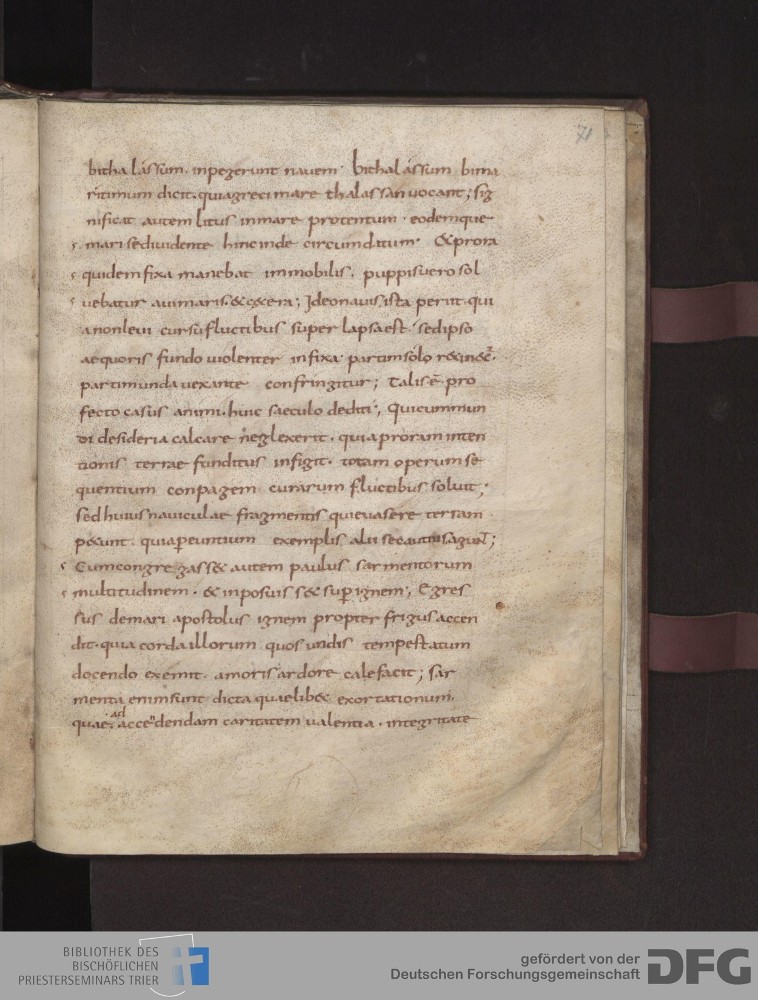 71
bithalassum. inpegerunt navem. bithalassum bima
ritimum dicit. quia greci mare thalassan vocant; sig
nificat autem litus in mare protentum. eodemque
mari se dividente hinc inde circumditum. & prora
quidem fixa manebat immobilis. puppis vero sol
vebatur a vi maris. & c&era; Ideo navis ista periit. qui
a non levi cursu fluctibus super lapsa est. sed ipso
aequoris fundo violenter infixa partim solo
partim unda vexante confringitur; Talis ē pro
fecto casus animi. huic saeculo dediti; Qui cum mun
di desideria calcare neglexerit. quia proram inten
tionis terrae funditus infigit. totam operum se
quentium conpagem curarum fluctibus solvit;
sed huius naviculae fragmentis qui evasere terram
p&unt. quia pereuntium exemplis alii
Cum congregass& autem paulus sarmentorum
multitudinem. & inposuiss& sup ignem; Egres
sus de mari apostolus ignem propter frigus accen
dit. quia corda illorum quos undis tempestatum
docendo exemit. amoris ardore calefacit; sar
menta enim sunt dicta quaelib& exortationum.
quae ad accendendam caritatem valentia. integritate
BIBLIOTHEK DES
BISCHÖFLICHEN
PRIESTERSEMINARS TRIER
gefördert von der
Deutschen Forschungsgemeinschaft
DFG